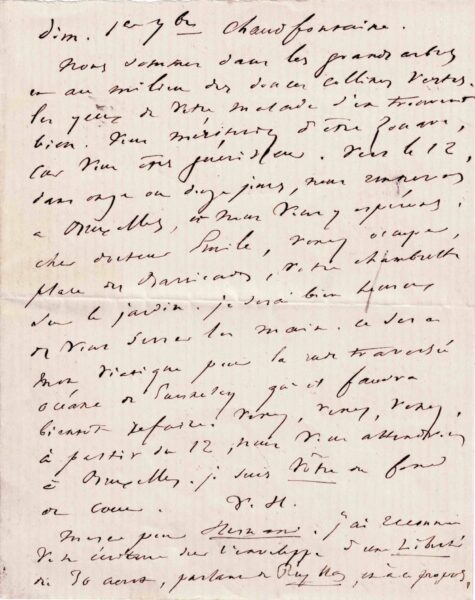 Dim. 1er 7bre Chaudfontaine.
Nous sommes dans les grands arbres
et au milieu des douces collines vertes.
les yeux de votre malade s'en trouvent
bien. Vous mériteriez d'être Zouave,
car vous êtes guérisseur. Vers le 12,
dans onze ou douze jours, nous serons
à Bruxelles, et nous vous y espérons ;
cher docteur Émile, venez occuper,
place des Barricades, votre chambrette
sur le jardin. je serai bien heureux
de vous serrer les mains. ce sera
mon viatique pour la rude traversée
océane de Guernesey qu'il faudra
bientôt refaire. Venez, venez, venez,
à partir du 12, nous vous attendons
à Bruxelles. je suis Vôtre du fond
du cœur. V. H.
Merci pour Hernani. J'ai reconnu
votre écriture sur l'enveloppe d'une Liberté
du 30 août, parlant de Ruy Blas, et à ce propos,